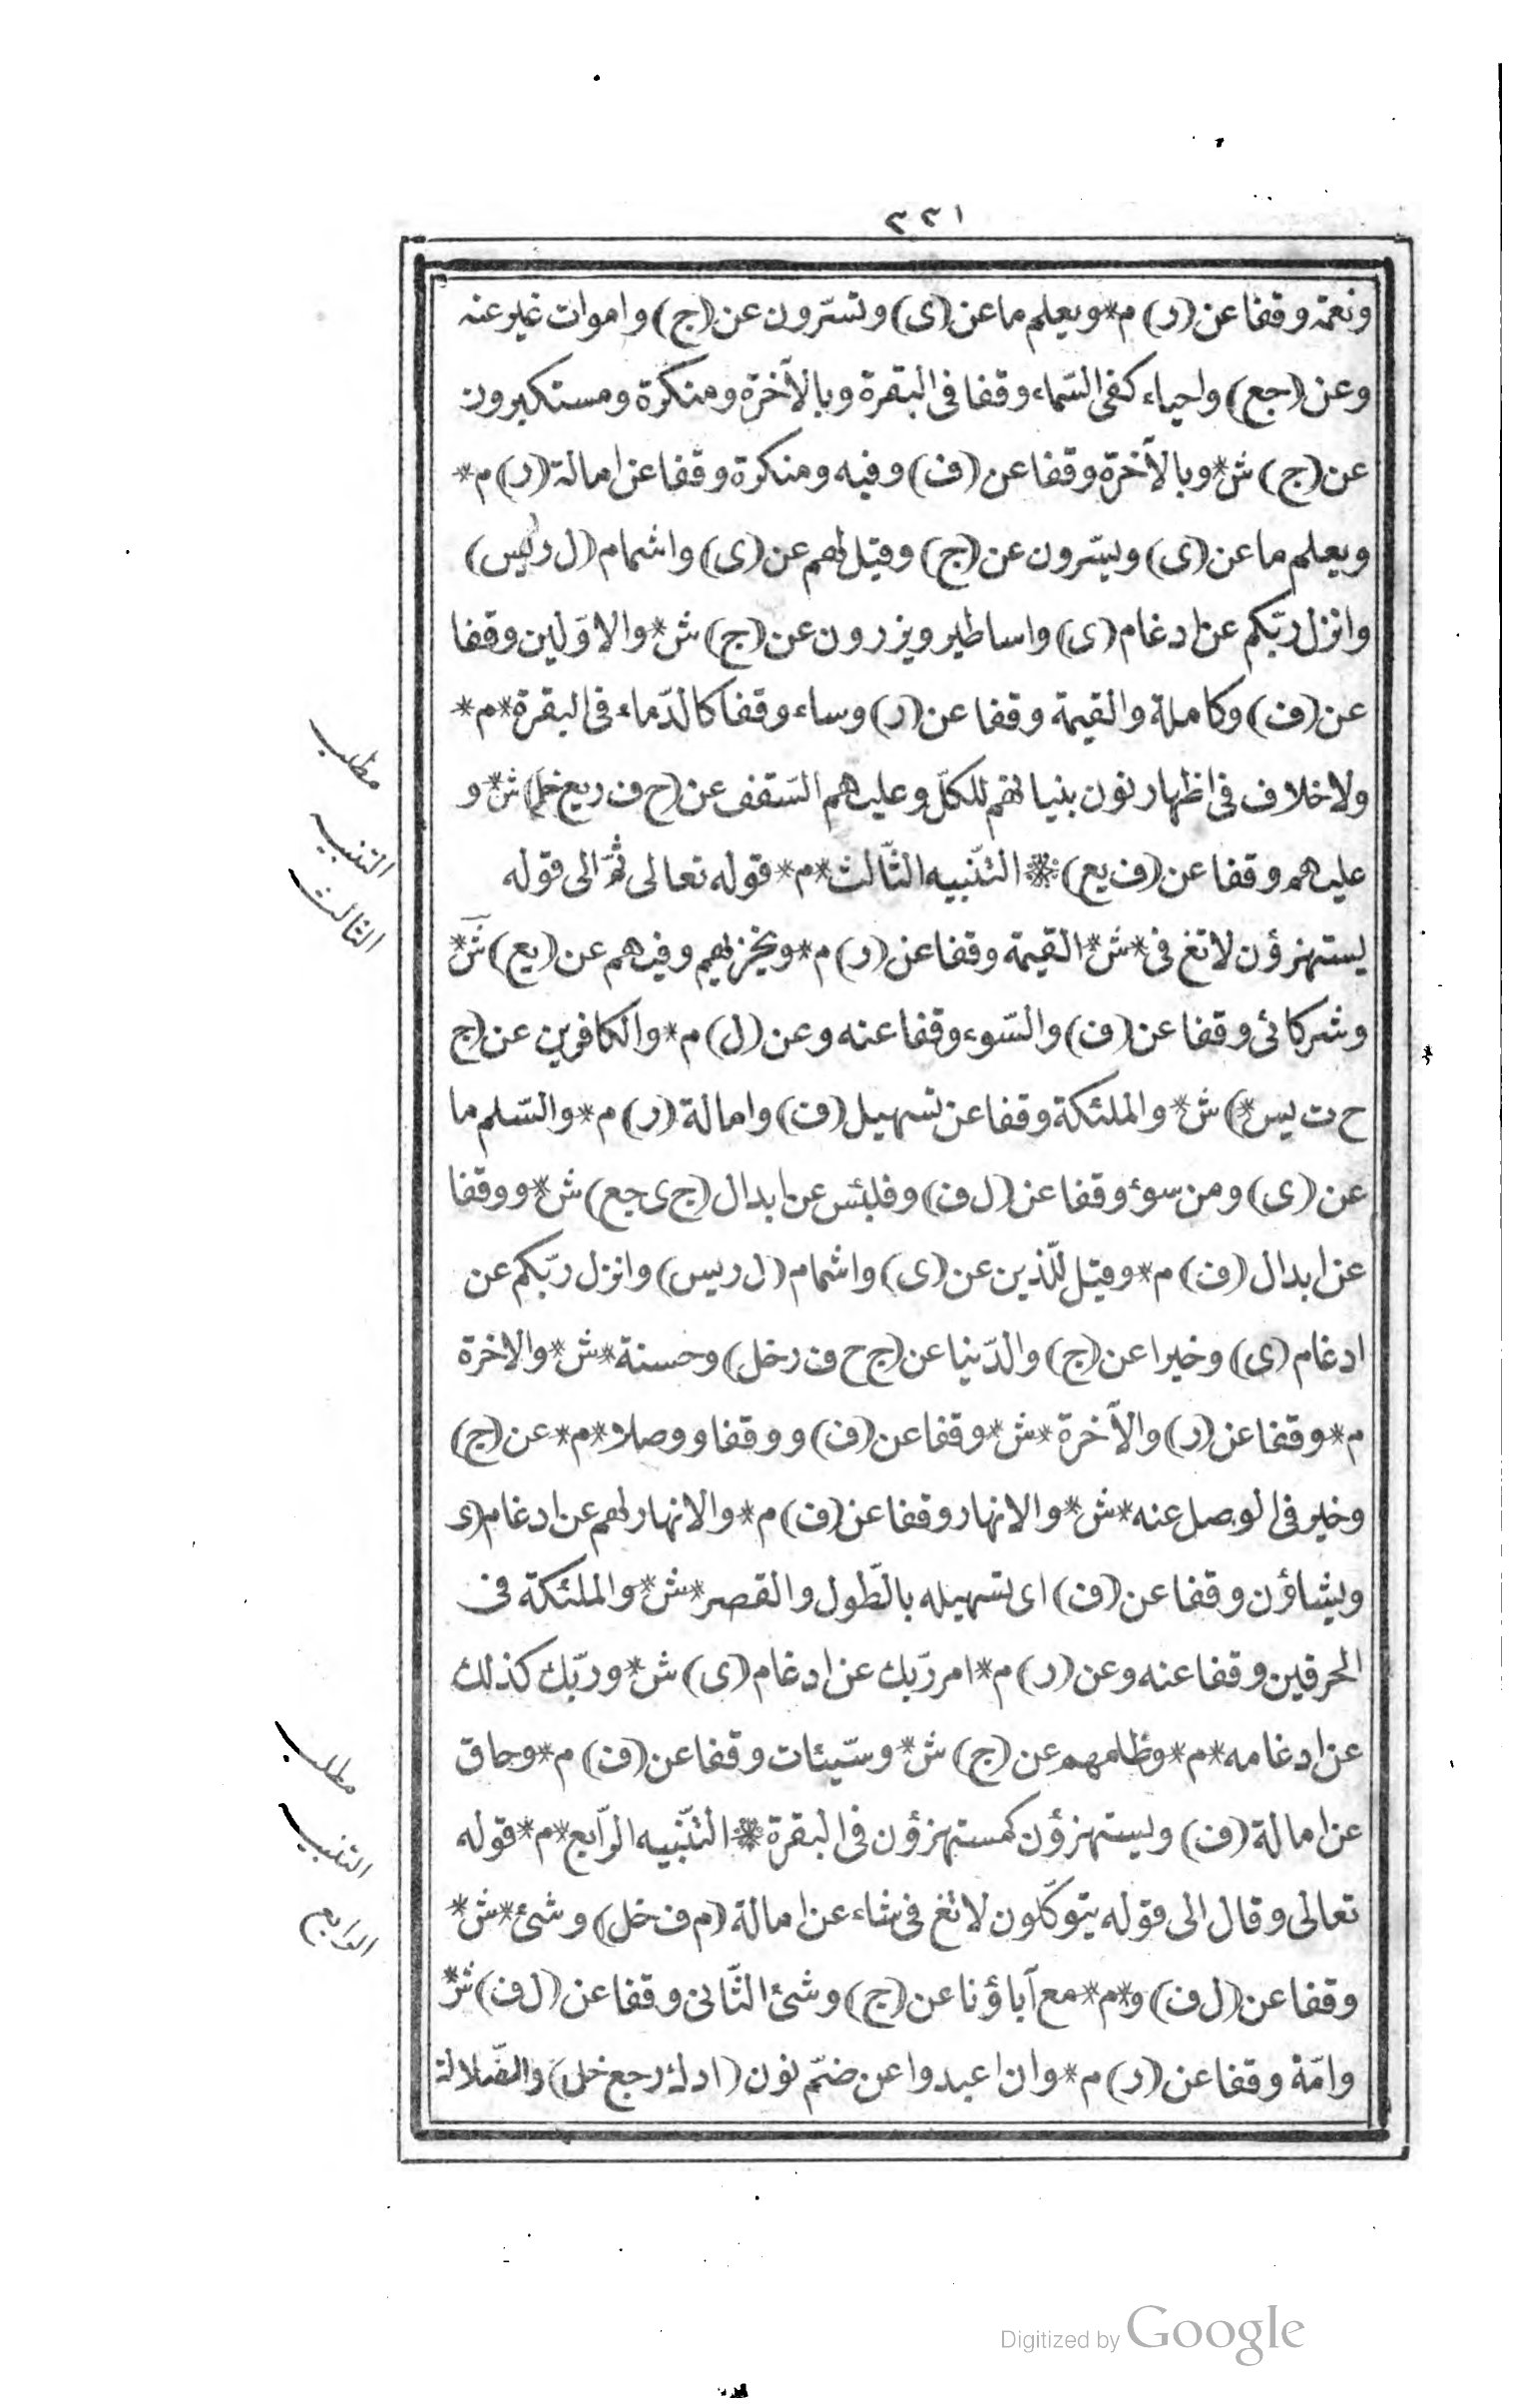 ٣٣١
ونعمة وقفا عن (ر) م* ويعلم ما عن (ى) وتسّرون عن (ج) واموات غير عنه
وعن (جع) واحياء كفى السّماء وقفا فى البقرة وبالآخرة ومنكرة ومستكبرون
عن (ج) ش* وبالآخرة وقفا عن (ف) وفيه ومنكرة وقفا عن امالة (ر) م*
ويعلم ما عن (ى) ويسّرون عن (ج) وقيل لهم عن (ى) واشمام (ل ر يس)
وانزل ربّكم عن ادغام (ى) واساطير ويزرون عن (ج) ش* والاوّلين وقفا
عن (ف) وكاملة والقيمة وقفا عن (ر) وساء وقفا كالدّماء فى البقرة *م*
ولا خلاف فى اظهار نون بنيانهم للكلّ وعليهم السّقف عن (ح ف ر يع خل) ش* و
عليهم وقفا عن (ف يع) * التّنبيه الثّالث *م* قوله تعالى ثمّ الى قوله
يستهزؤن لا تغ فى *ش* القيمة وقفا عن (ر) م* ويخزيهم وفيهم عن (يع) ش*
وشركائى وقفا عن (ف) والسّوء وقفا عنه وعن (ل) م* والكافرين عن (ج
ح ت يس*) ش* والملئكة وقفا عن تسهيل (ف) وامالة (ر) م* والسّلم ما
عن (ى) ومن سوء وقفا عن (ل ف) وفلبئس عن ابدال (ج ى جع) ش* ووقفا
عن ابدال (ف) م* وقيل للّذين عن (ى) واشمام (ل ر يس) وانزل ربّكم عن
ادغام (ى) وخيرا عن (ج) والدّنيا عن (ج ح ف ر خل) وحسنة *ش* والاخرة
م* وقفا عن (ر) والآخرة *ش* وقفا عن (ف) ووقفا ووصلا *م* عن (ج)
وخير فى الوصل عنه *ش* والانهار وقفا عن (ف) م* والانهار لهم عن ادغام (ى
ويشاؤن وقفا عن (ف) اى تسهيله بالطّول والقصر *ش* والملئكة فى
الحرفين وقفا عنه وعن (ر) م* امر ربّك عن ادغام (ى) ش* وربّك كذلك
عن ادغامه *م* وظلمهم عن (ج) ش* وسّيئات وقفا عن (ف) م* وحاق
عن امالة (ف) ويستهزؤن كمستهزؤن فى البقرة * التّنبيه الرّابع *م* قوله
تعالى وقال الى قوله يتوكّلون لا تغ فى شاء عن امالة (م ف خل) وشئ *ش*
وقفا عن (ل ف) و*م* مع آباؤنا عن (ج) وشئ الثّانى وقفا عن (ل ف) ش*
وامّة وقفا عن (ر) م* وان اعبدوا عن ضمّ نون (اد ك ر جع خل) والضّلالة
مطلب
التنبيه
الثالث
مطلب
التنبيه
الرابع
Digitized by Google